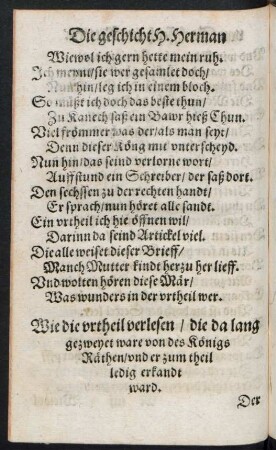 Die geschicht H. Herman
Wiewol ich gern hette mein ruh.
Ich meynt/sie wer gesamlet doch/
Nun hin/leg ich in einem bloch.
So můßt ich doch das beste thun/
Zu Kanech saß ein Bawr hieß Chun.
Viel frömmer was der/als man seyt/
Denn dieser Köng mit vnterscheyd.
Nun hin/das seind verlorne wort/
Auffstund ein Schreiber/ der saß dort.
Den sechssen zu der rechten handt/
Er sprach/nun höret alle sandt.
Ein vrtheil ich hie öffnen wil/
Darinn da seind Artickel viel.
Die alle weiset dieser Brieff/
Manch Mutter kindt herzu her lieff.
Vnd wolten hören diese Mär/
Was wunders in der vrtheil wer.
Wie die vrtheil verlesen / die da lang
gezweyet ware von des Königs
Räthen/vnd er zum theil
ledig erkandt
ward.
Der